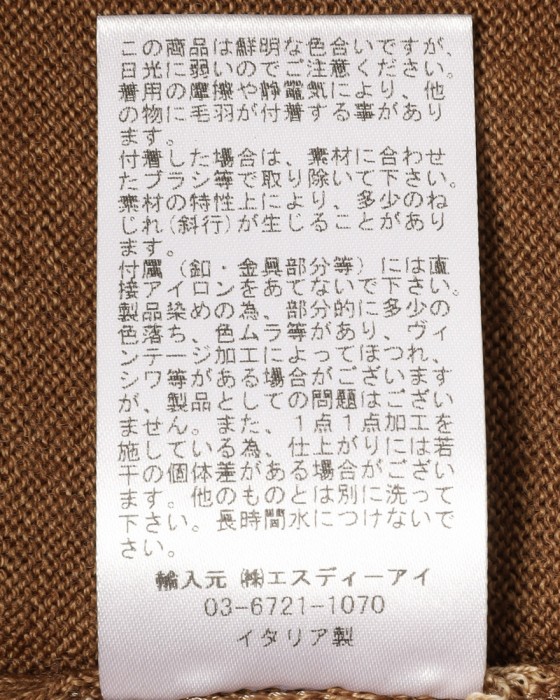 この商品は鮮明な色合いですが、
日光に弱いのでご注意ください。
着用の摩擦や静電気により、他
の物に毛羽が付着する事があり
ます。
付着した場合は、素材に合わせ
たブラシ等で取り除いて下さい。
素材の特性上により、多少のね
じれ(斜行)が生じることがあり
ます。
付属(釦・金具部分等)には直
接アイロンをあてないで下さい。
製品染めの為、部分的に多少の
色落ち、色ムラ等があり、ヴィ
ンテージ加工によってほつれ、
シワ等がある場合がございます
が、製品としての問題はござい
ません。また、1点1点加工を
施している為、仕上がりには若
干の個体差がある場合がござい
ます。他のものとは別に洗って
下さい。長時間水につけないで
さい。
輸入元 ㈱エスディーアイ
03-6721-1070
イタリア製